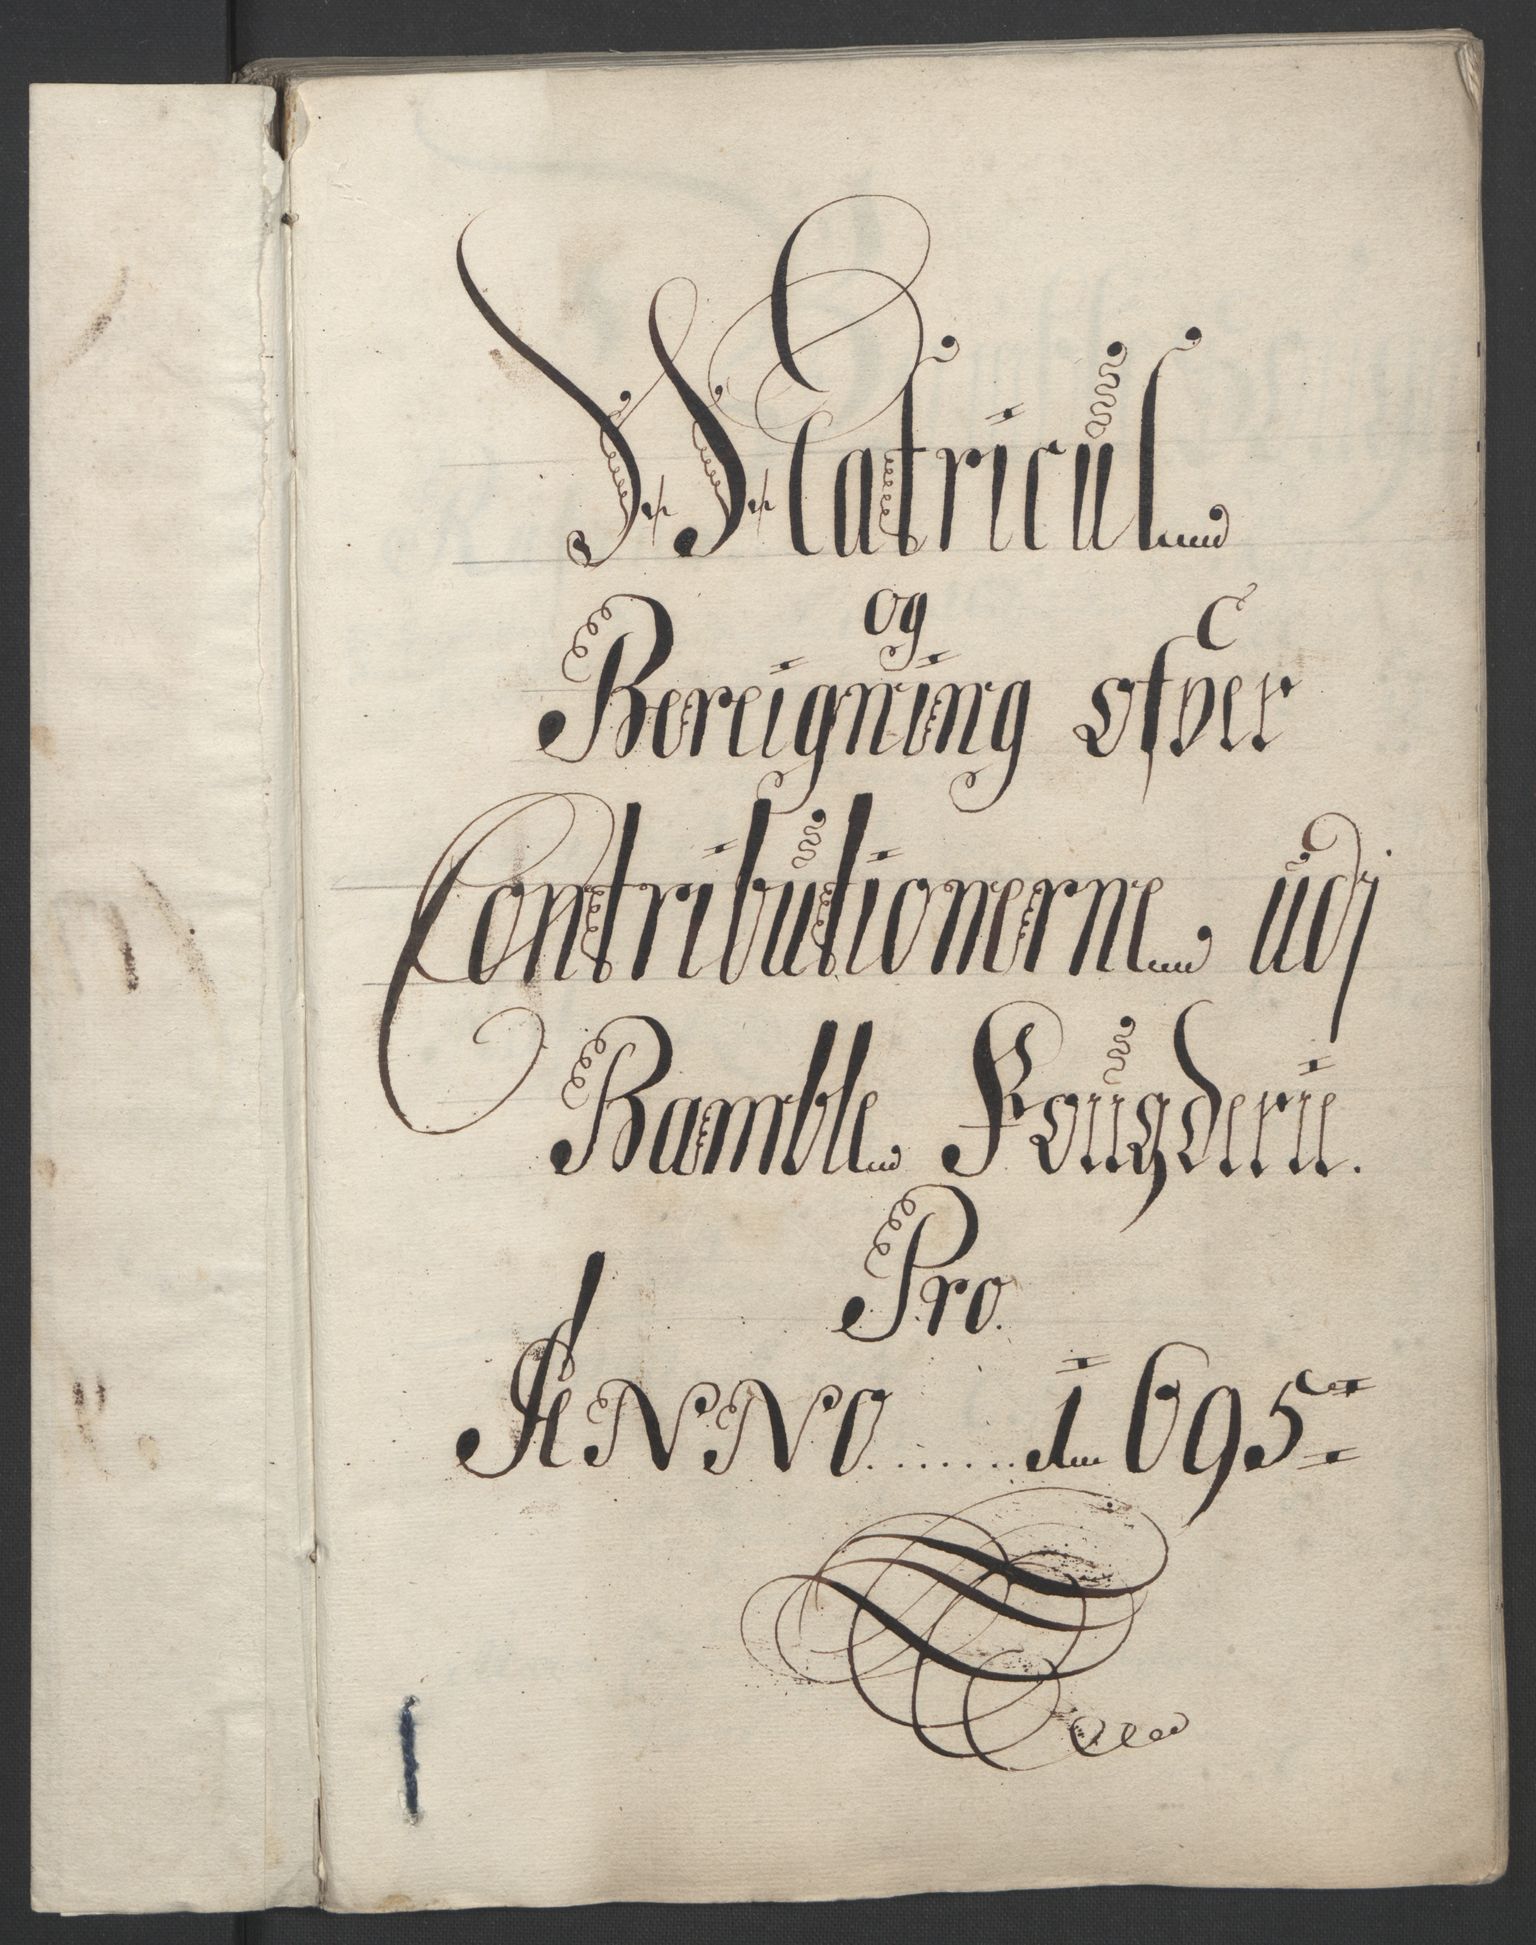 Matricul
og
Bereigning ofver
Contributionerne udj
Bamble Fougderie.
Pro.
ANNO ....... 1695